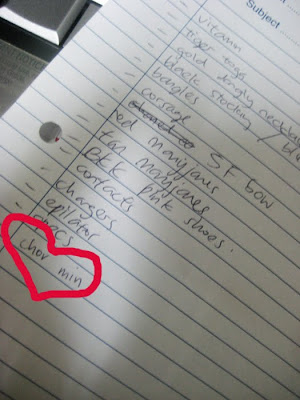 Subject
- vitamin
- tiger tags
- gold dangly neckla
- black stocking / bl
- bangles
- corsage
SF bow
red maryjanes
- tan maryjanes
- pink shoes.
- contacts
- chargers
- epilator
chor min